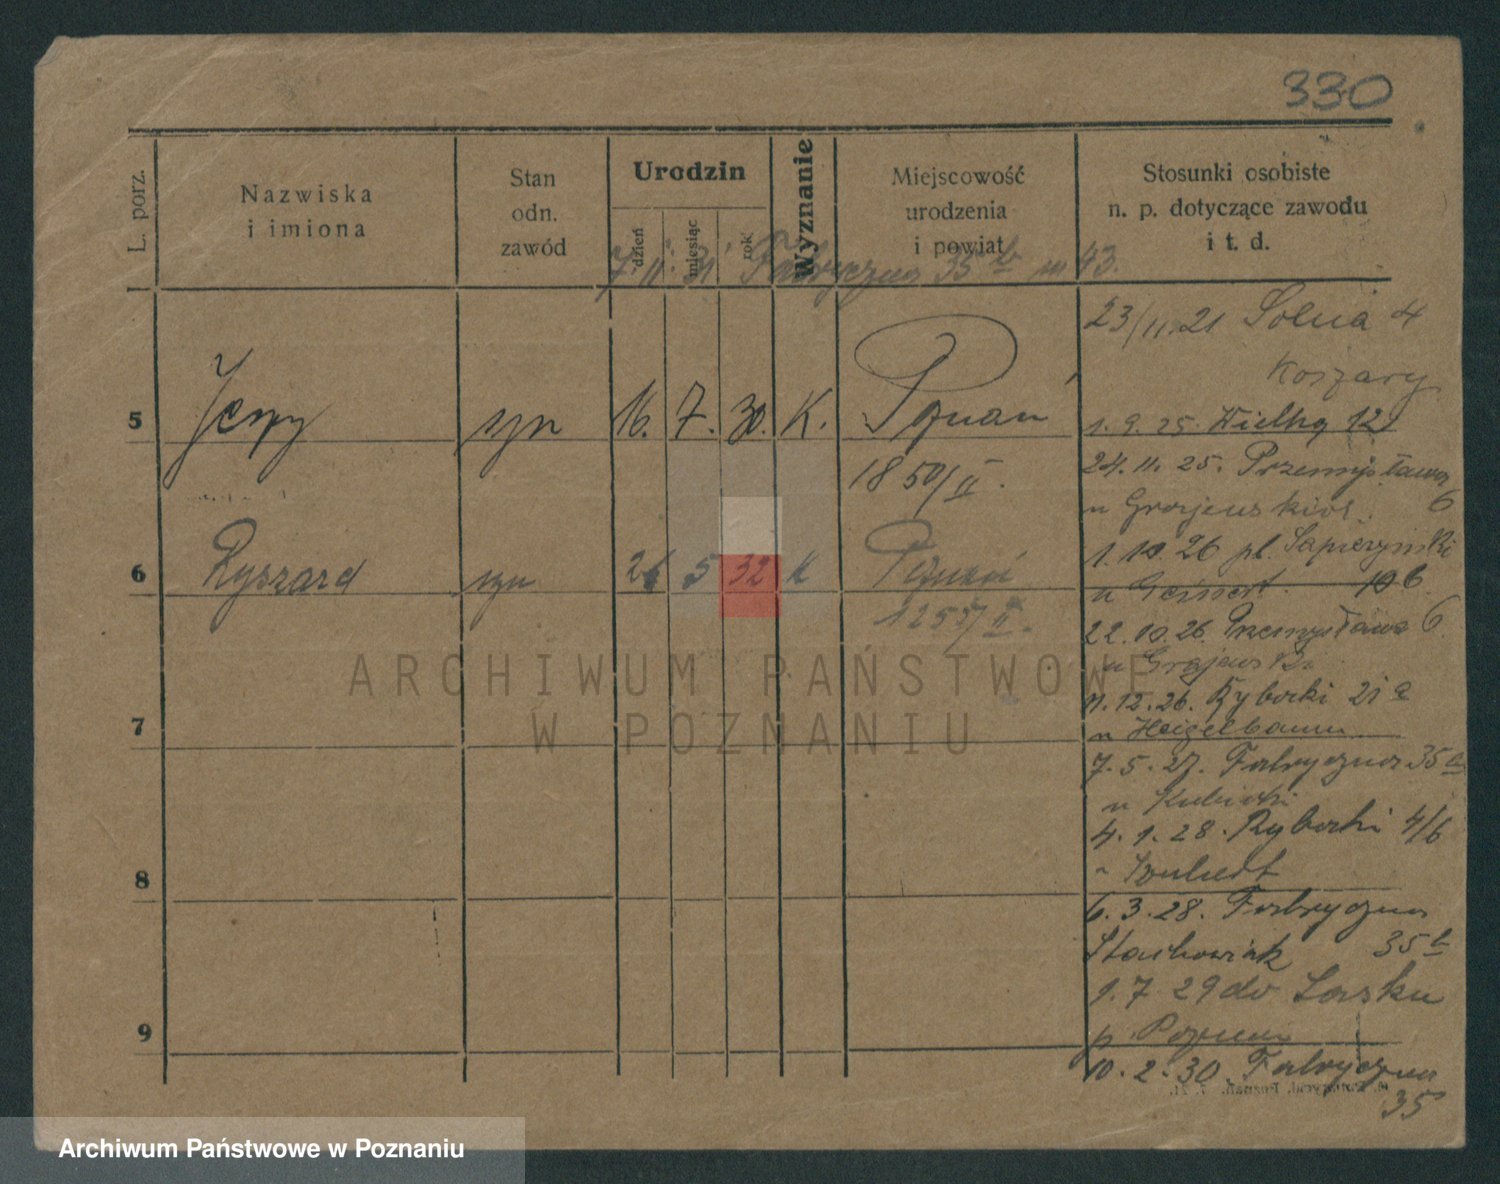 330
L. porz.
Nazwiska
i imiona
Stan
odn.
zawód
Urodzin
dzień
miesiąc
rok
Wyznanie
Miejscowość
urodzenia
i powiat
Stosunki osobiste
n. p. dotyczące zawodu
i t. d.
7. 11. 31 Fabryczna 35 b m 43.
23/11.21 Solna 4
Koszary
5 Jerzy syn 16. 7. 30. K. Poznań
1850/II.
1. 9. 25. Wielka 12
24. 11. 25. Przemysława
u Grajewskich 6
6 Ryszard syn 26 5 32 k Poznań
1255/II.
1. 10 26 pl. Sapieżyński
u 10 b
22. 10. 26. Przemysława 6.
u Grajewski
11. 12. 26. Rybacki 21 a
u Heigelbaum
7
7. 5. 27. Fabryczna 35 a
u Kubicki
4. 1. 28. Rybacki 4/6
8
6. 3. 28. Fabryczna
Stachowiak 35 b
1. 7 29 do Lasku
p. Poznań
9
10. 2. 30. Fabryczna
35
ARCHIWUM PAŃSTWOWE
W POZNANIU
Archiwum Państwowe w Poznaniu